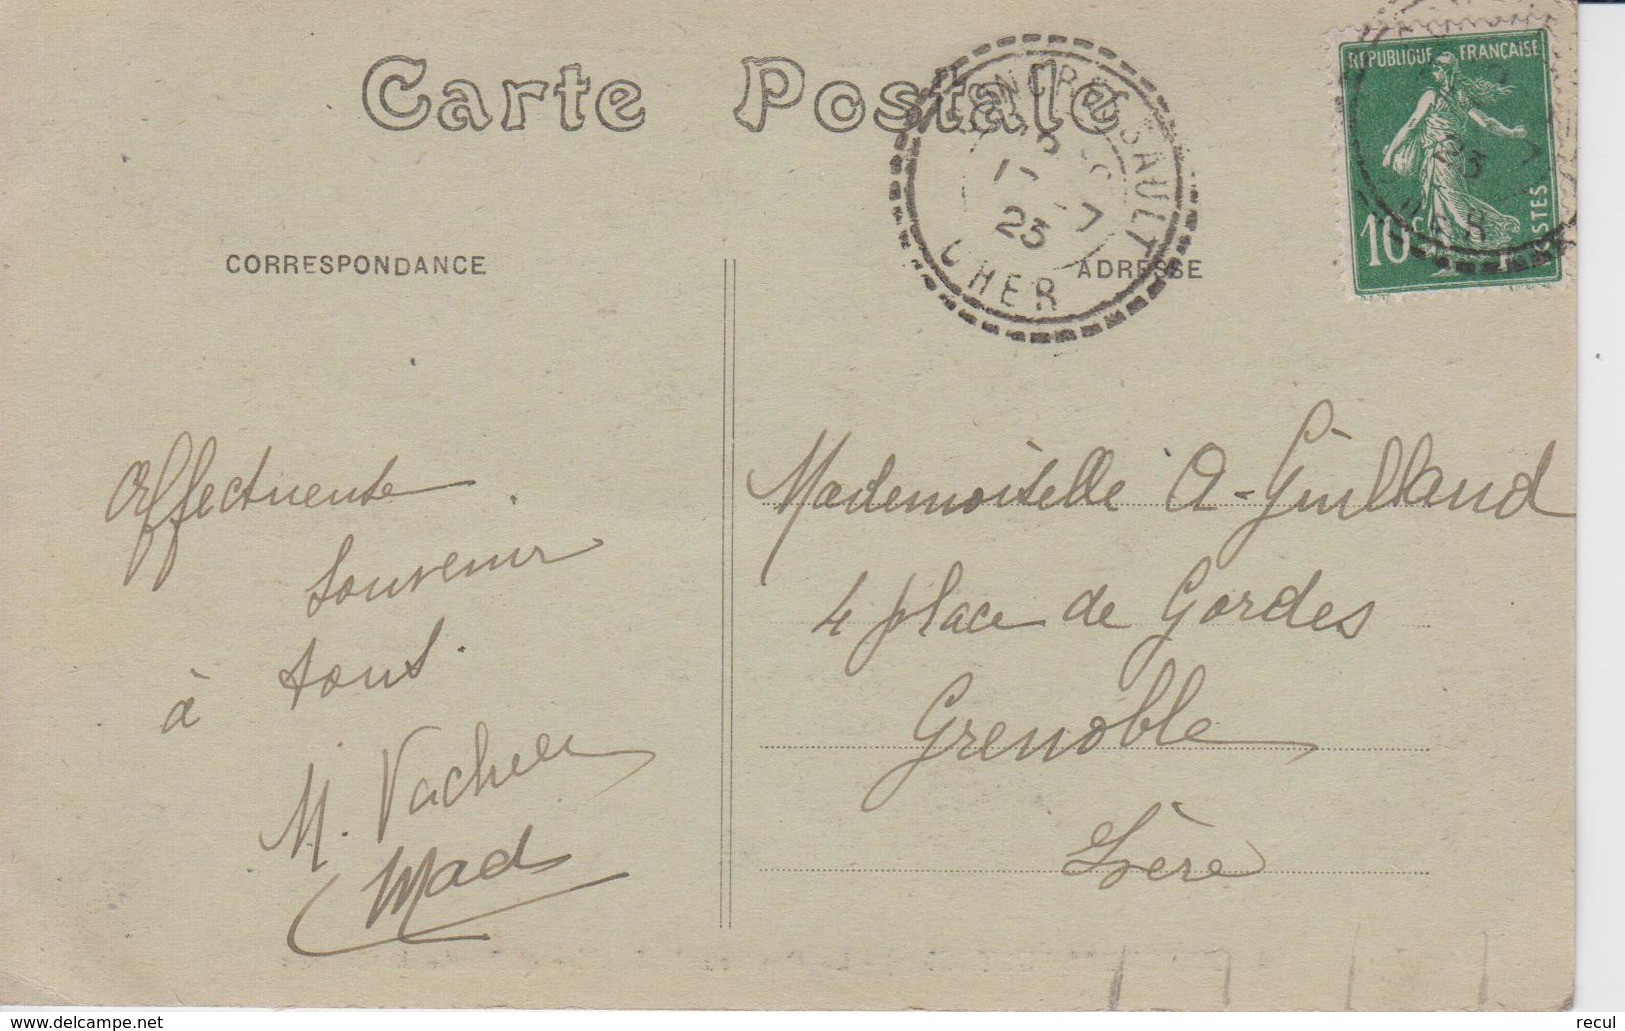 Carte Postale
CONCRESSAULT
23
7
CHER
REPUBLIQUE FRANCAISE
10c
POSTES
23
CORRESPONDANCE
ADRESSE
Affectueux
souvenir
à tous.
M. Vacher
Mad
Mademoiselle A. Guilland
4 place de Gordes
Grenoble
Isère
www.delcampe.net
recul